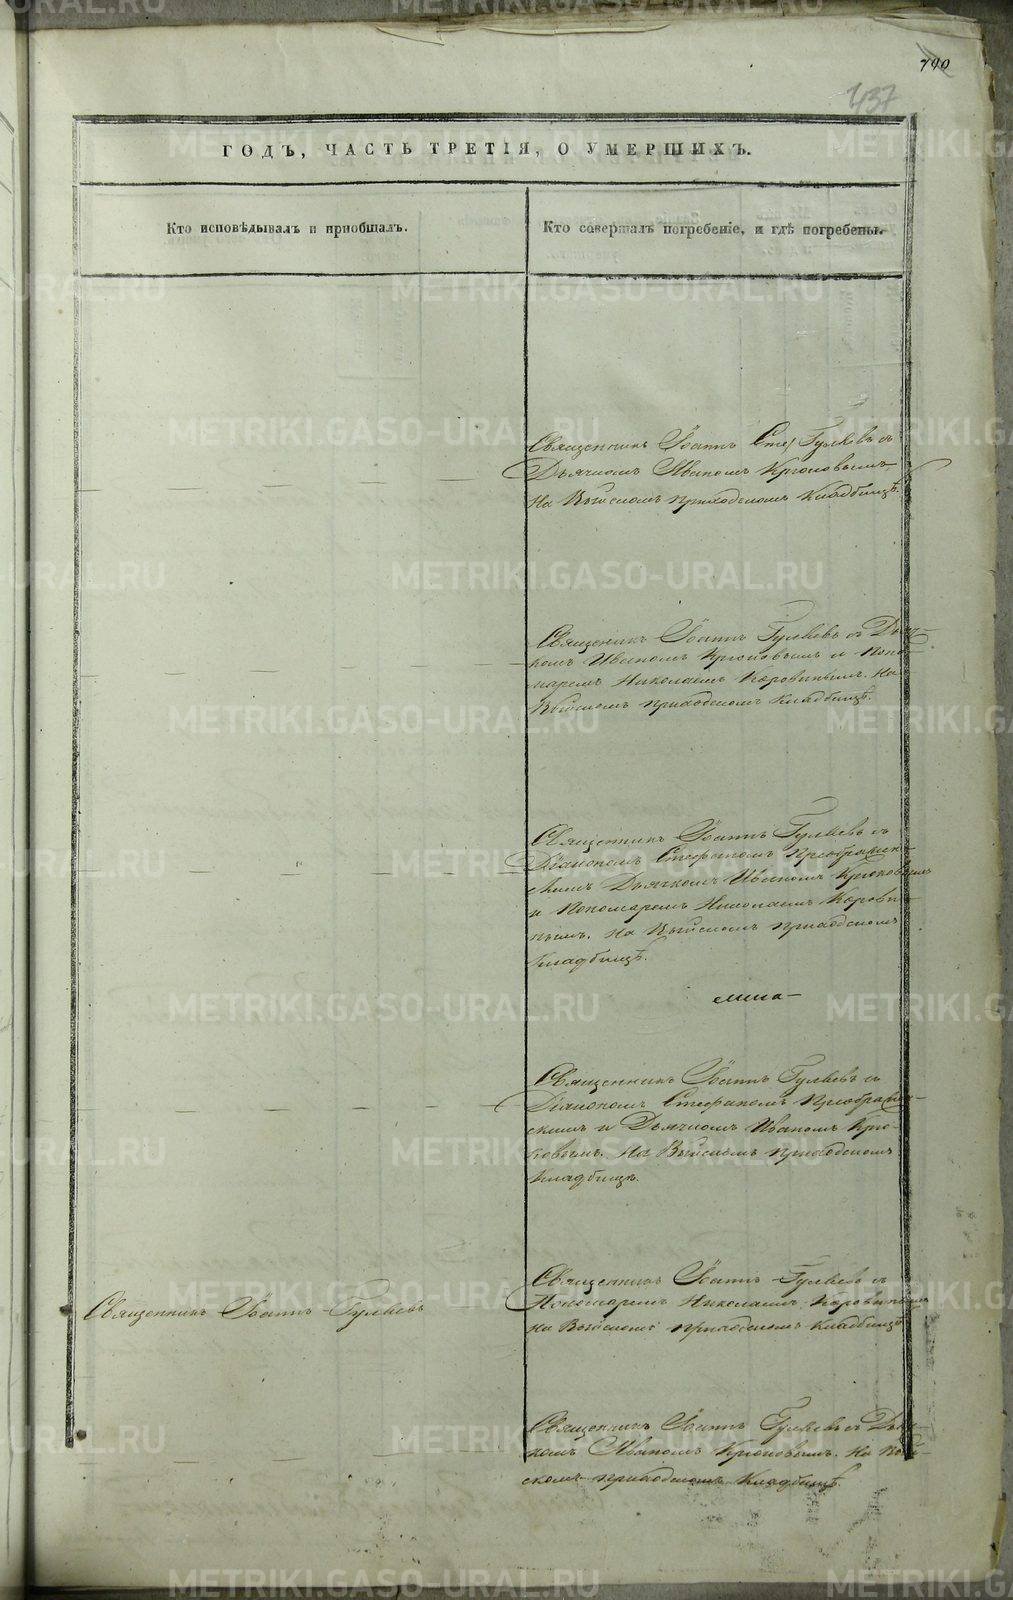 790
437
ГОДЪ, ЧАСТЬ ТРЕТІЯ, О УМЕРШИХЪ.
Кто исповѣдывалъ и пріобщалъ.
Кто совершалъ погребеніе, и гдѣ погребены.
Священникъ Іоаннъ Сте/ Гуляевъ съ
Дьячкомъ Иваномъ Крюковымъ
На Выйскомъ приходскомъ кладбищѣ.
Священникъ Іоаннъ Гуляевъ съ Дьяч-
комъ Иваномъ Крюковымъ и Поно-
маремъ Николаемъ Коровинымъ. На
Выйскомъ приходскомъ кладбищѣ.
Священникъ Іоаннъ Гуляевъ съ
Діакономъ Стефаномъ Преображен-
скимъ Дьячкомъ Иваномъ Крюковымъ
и Пономаремъ Николаемъ Корови-
нымъ. На Выйскомъ приходскомъ
кладбищѣ.
Священникъ Іоаннъ Гуляевъ съ
Діакономъ Стефаномъ Преображен-
скимъ и Дьячкомъ Иваномъ Крю-
ковымъ. На Выйскомъ приходскомъ
кладбищѣ.
Священникъ Іоаннъ Гуляевъ
Священникъ Іоаннъ Гуляевъ съ
Пономаремъ Николаемъ Коровинымъ
На Выйскомъ приходскомъ кладбищѣ
Священникъ Іоаннъ Гуляевъ съ Дьяч-
комъ Иваномъ Крюковымъ. На Вый-
скомъ приходскомъ кладбищѣ.
METRIKI.GASO-URAL.RU